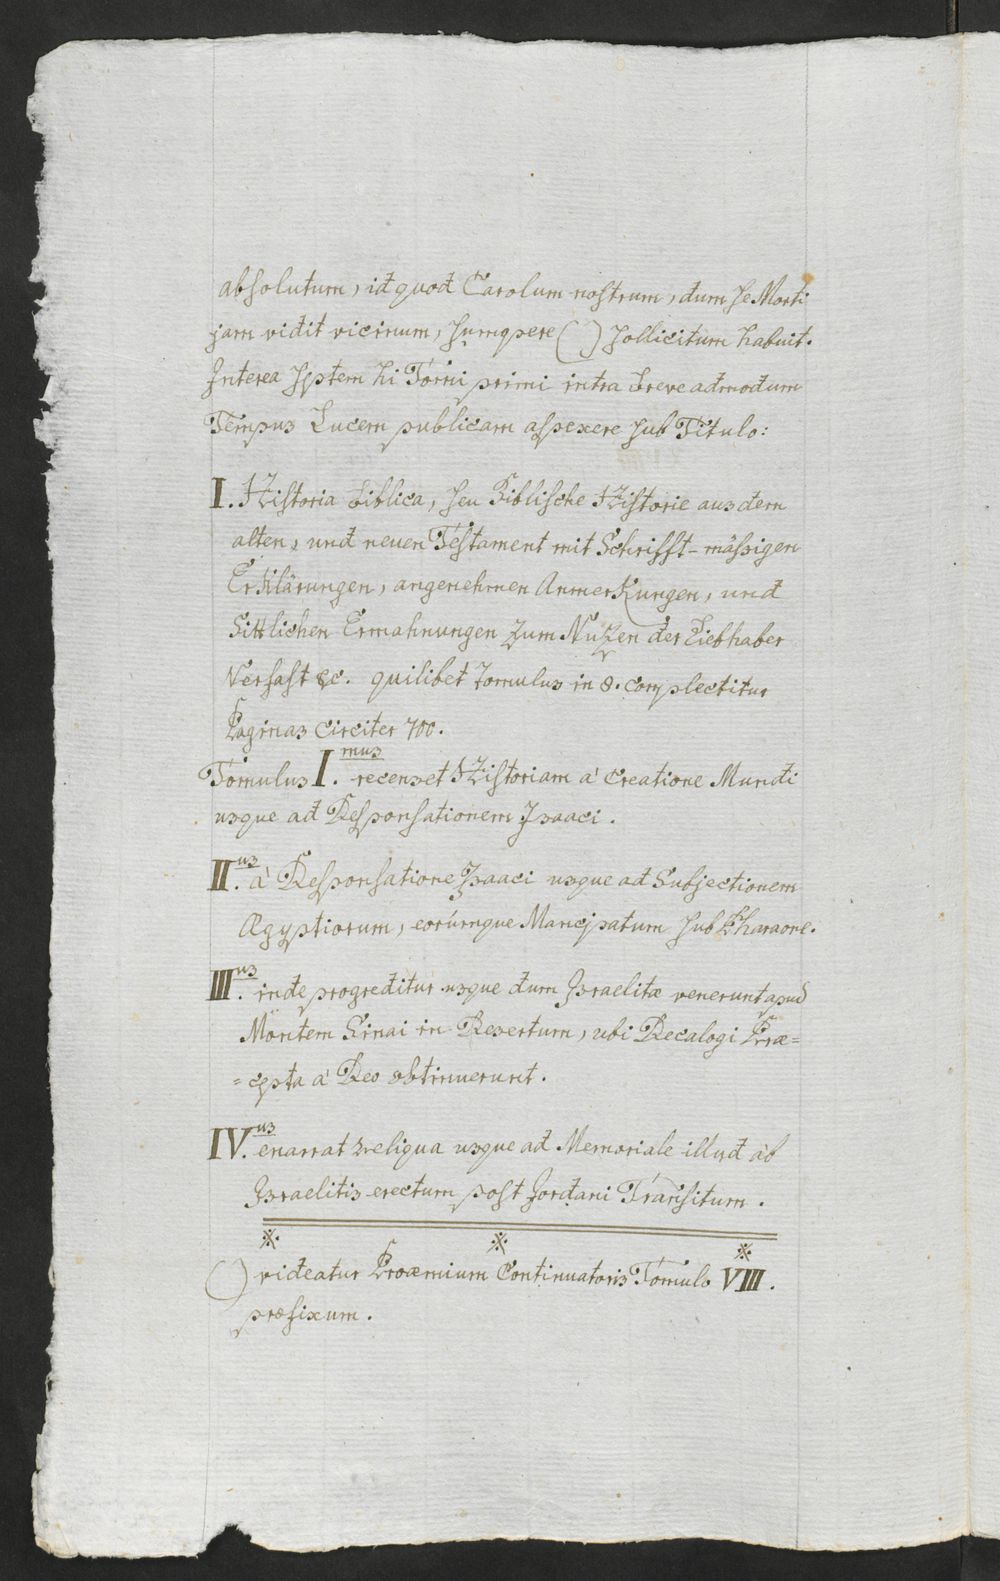 absolutum, id quod Carolum nostrum, dum se Morti
jam vidit vicinum, sumopere ( ) sollicitum habuit.
Interea septem hi Tomi primi intra breve admodum
Tempus Lucem publicam aspexere sub Titulo:
I. Historia biblica, seu Biblische Historie aus dem
alten, und neuen Testament mit Schrifft-mässigen
Erklärungen, angenehmen Anmerkungen, und
Sittlichen Ermahnungen zum Nutzen der Liebhaber
Verfast &c. quilibet Tomulus in 8. complectitur
Paginas circiter 700.
Tomulus I.mus recenset Historiam à Creatione Mundi
usque ad Desponsationem Isaaci.
II.us à Desponsatione Isaaci usque ad Subjectionem
Ægyptiorum, eorúmque Mancipatum sub Pharaone.
III.us inde progreditur usque dum Israelitæ venerunt apud
Montem Sinai in Desertum, ubi Decalogi Præ=
=cepta à Deo obtinuerunt.
IV.us enarrat reliqua usque ad Memoriale illud ab
Israelitis erectum post Jordani Transitum.
※ ※ ※
( ) videatur Proæmium Continuatoris Tomulo VIII.
præfixum.